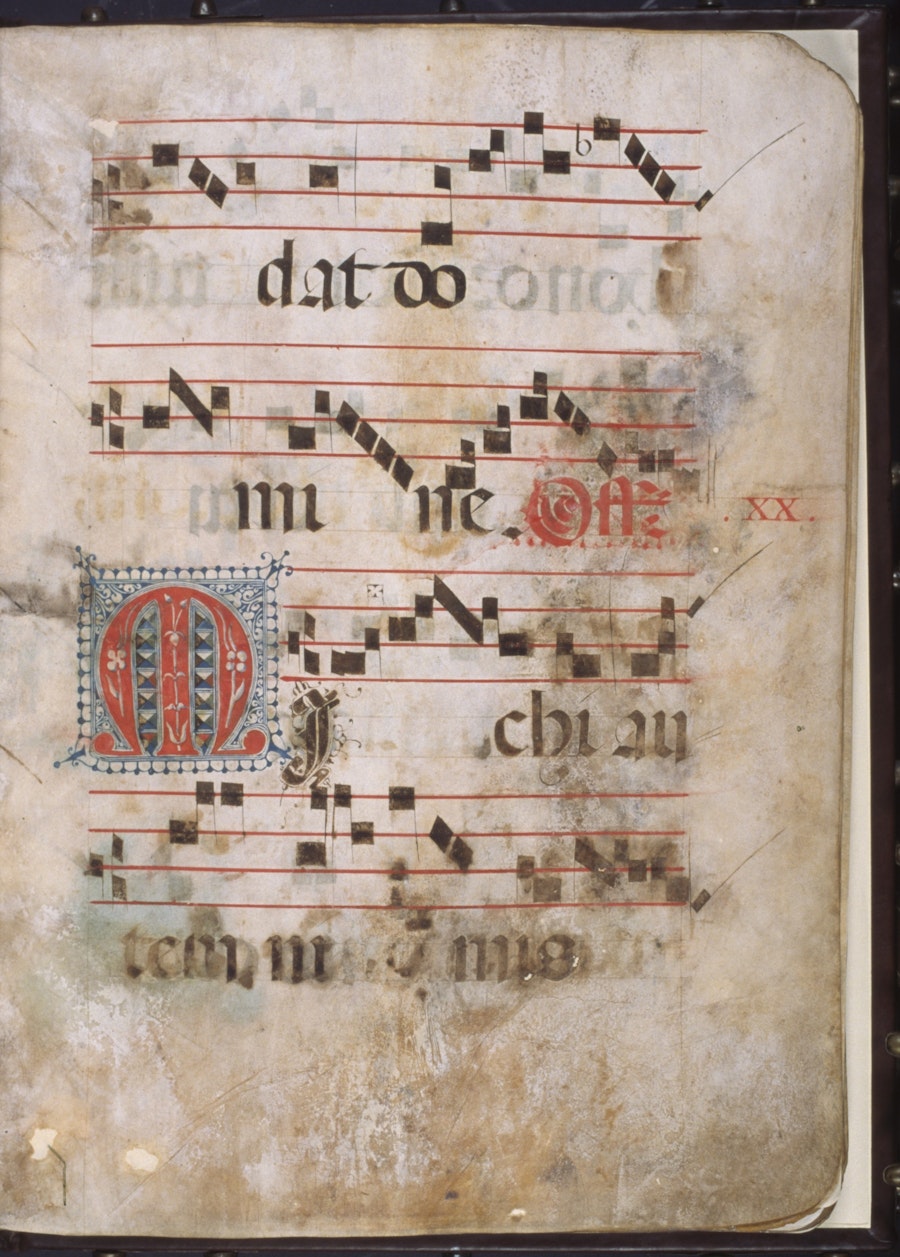 dat do
mi ne. Off .XX.
MI chi au
tem ni mis